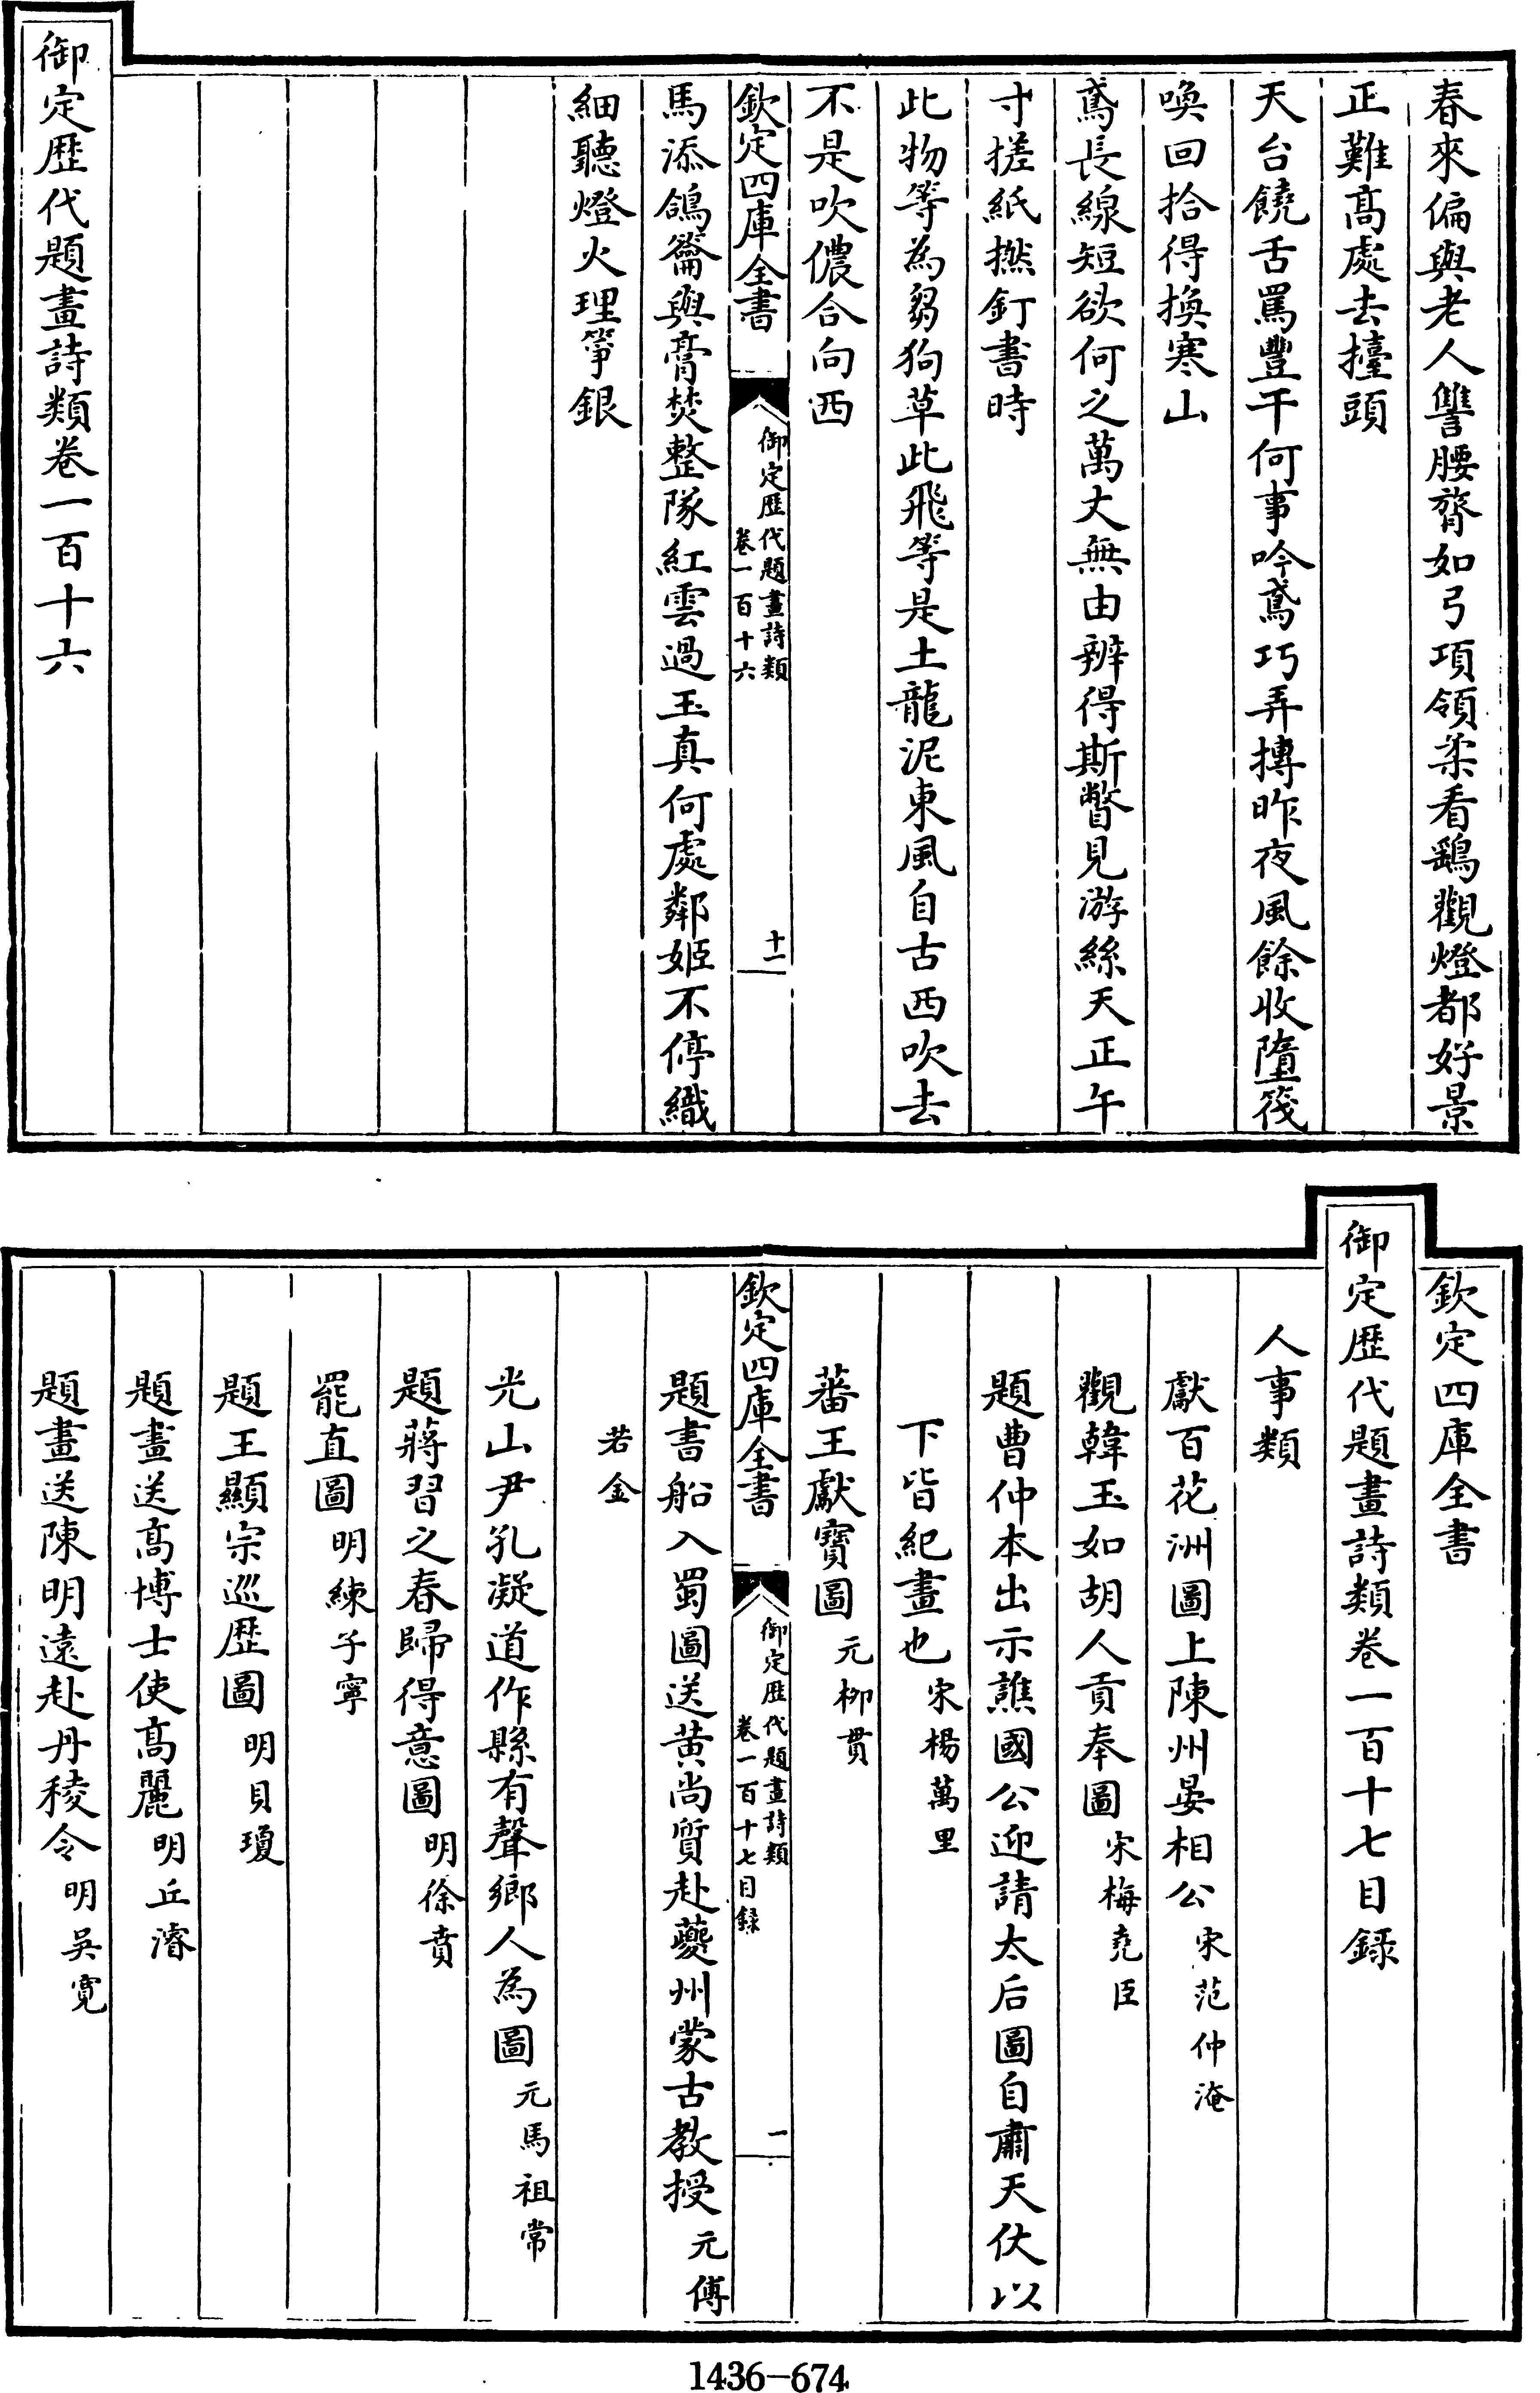 春來偏與老人讐腰膂如弓項領柔看鷂觀燈都好景
正難髙處去擡頭
天台饒舌罵豐干何事吟鳶巧弄摶昨夜風餘收墮筏
喚回拾得換寒山
鳶長線短欲何之萬丈無由辨得斯瞥見游絲天正午
寸搓紙撚釘書時
此物等為芻狗草此飛等是土龍泥東風自古西吹去
不是吹儂合向西
欽定四庫全書
御定歴代題畫詩類
卷一百十六
十一
馬添鴿籥與膏焚整隊紅雲過玉真何處鄰姬不停織
細聽燈火理箏銀
御定歴代題畫詩類卷一百十六
欽定四庫全書
御定歴代題畫詩類卷一百十七目録
人事類
獻百花洲圖上陳州晏相公 宋范仲淹
觀韓玉如胡人貢奉圖 宋梅堯臣
題曹仲本出示譙國公迎請太后圖自肅天仗以
下皆紀畫也 宋楊萬里
蕃王獻寶圖 元柳貫
欽定四庫全書
御定歴代題畫詩類
卷一百十七目録
一
題書船入蜀圖送黄尚質赴夔州蒙古教授 元傅
若金
光山尹孔凝道作縣有聲鄉人為圖 元馬祖常
題蔣習之春歸得意圖 明徐賁
罷直圖 明練子寧
題王顯宗巡歴圖 明貝瓊
題畫送髙博士使髙麗 明丘濬
題畫送陳明遠赴丹稜令 明吳寛
1436-674